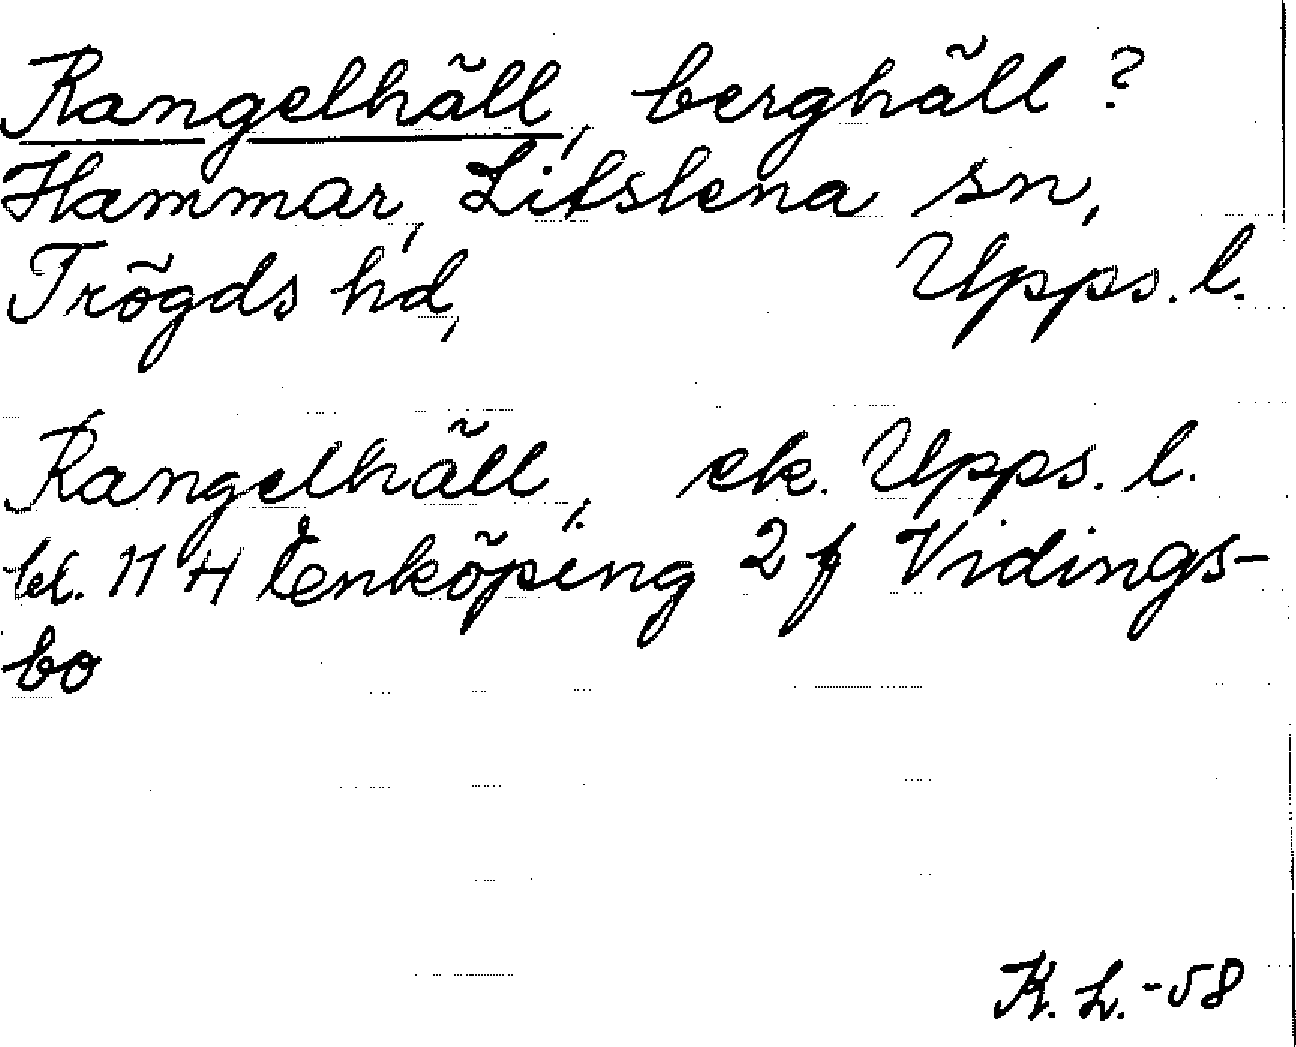 Rangelhäll, berghäll?
Hammar, Litslena sn,
Trögds hd, Upps. l.
Rangelhäll, ek. Upps. l.
bl. 114 Enköping 2 f Vidings-
bo
K. L. -58